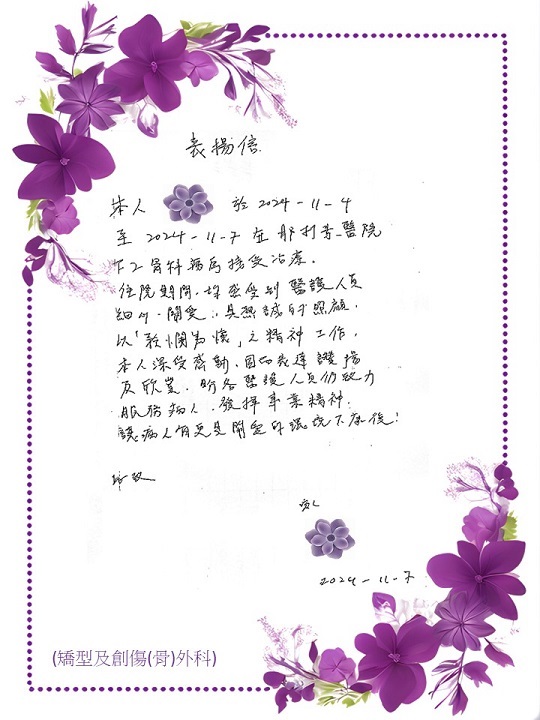 表揚信
本人 於 2024-11-4
至 2024-11-7 在那打素醫院
F2骨科病房接受治療.
住院期間, 感受到醫護人員
細心、關愛、真誠的照顧,
以「矜憫為懷」之精神工作,
本人深受感動, 因此表達讚揚
及欣賞. 盼各醫護人員仍致力
服務病人, 發揮專業精神.
讓病人有更具關愛的環境下康復!
此致
病人
2024-11-7
(矯型及創傷(骨)外科)